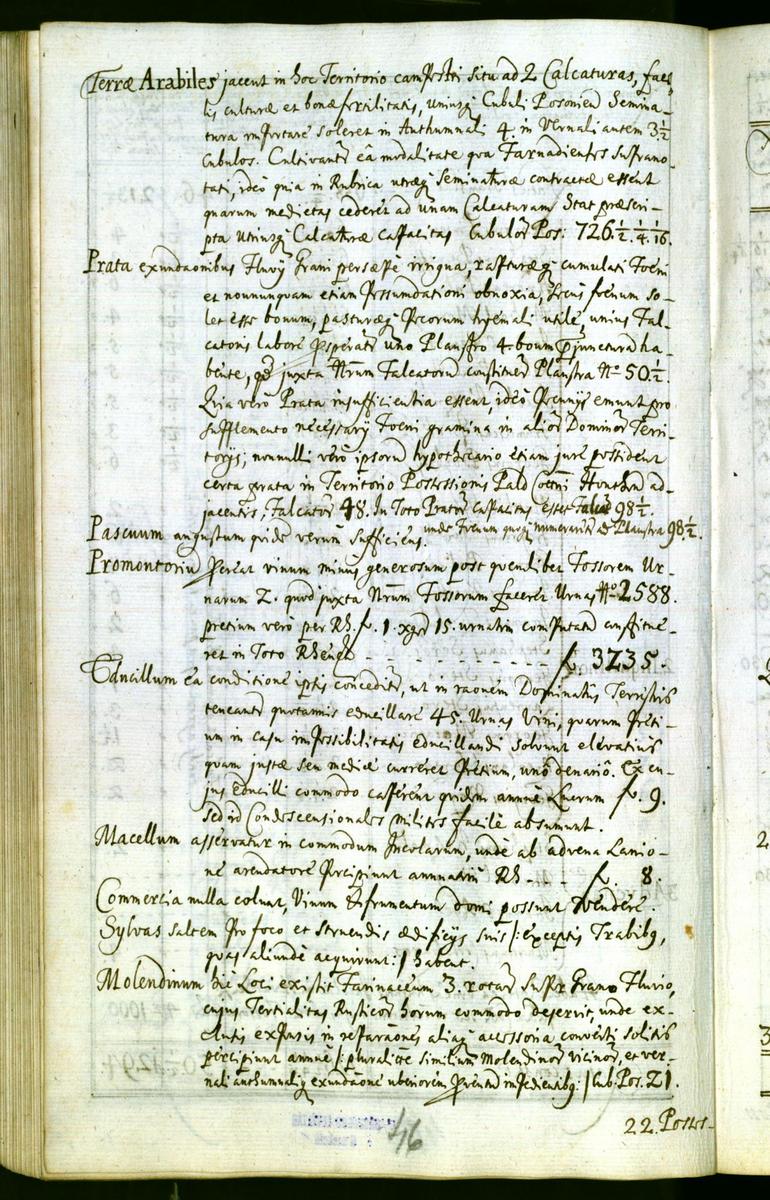 Terræ Arabiles jacent in hoc Territorio campestri situ ad 2 Calcaturas, faci-
lis culturæ et bonæ fertilitatis, uniusq Cubuli Posonien Semina-
tura importare soleret in Authumnali 4. in Vernali autem 3½
Cubulos. Cultivantr eâ modalitate qua Farnadienses suprano-
tati, ideó quia in Rubrica utræq Seminaturæ contractæ essent
quarum medietas cederet ad unam Calcaturam Stat præscri-
pta utriusq Calcaturæ capacitas Cubulor Pos: 726.½.¼.1/16.
Prata exundaonibus Fluvy Grani persæpè irrigua, rapturæq cumulati Foeni
et nonnunquam etiam pessumdationi obnoxia, secus foenum so-
let esse bonum, pasturæq Pecorum hyemali utile, unius Fal-
catoris labore prosperatr uno Plaustro 4 boum junctura ha-
bente, qd juxta Nrum Falcatorū constituer Plaustra No 50½.
Quia verò Prata insufficientia essent, ideò Pecunijs emunt pro
supplemento necessarij Foeni gramina in alior Dominor Terri-
torijs, nonnulli verò ipsorū hypothecario etiam jure possident
certa prata in Territorio Possessionis Pald Cottui Honthen ad-
jacentis, Falcator 48. In Toto Prator capacitas esset Falcat 98½.
unde Foenum quoq numeraretr ad Plaustra 98.½.
Pascuum angustum quidē verum sufficiens.
Promontoriū Fereat vinum minus generosum post quemlibet Fossorem Ur-
narum 2. quod juxta Nrum Fossorum faceret Urnas No 2588.
pretium verò per Rh. f. 1. xgr 15. urnatim computatū constitue-
ret in Toto Rhen - - - - - - - - - - f. 3235.
Educillum eâ conditione ipsis conceditr, ut in raonem Dominalis Terristris
teneantr quotannis educillare 45. Urnas Vini, quarum preti-
um in casu impossibilitatis educillandi solvunt elevatius
quam justæ seu mediæ curreret Pretium, uno denariô. Ex cu-
jus Educilli commodo caperent quidem annuè Lucrum f. 9.
sed id Condescensionales Milites facilè absumunt.
Macellum asservatur in commodum Incolarum, unde ab advena Lanio-
ne arendatore Percipiunt annuatim Rh - - - f. 8.
Commercia nulla colunt, Vinum & frumentum domi possunt vendere.
Sylvas saltem pro foco et struendis ædificijs suis /: exceptis Trabibq,
quas aliundè acquirunt :/ habent.
Molendinum hic Loci existit Farinaceum 3. rotar super Grano Fluvio,
cujus Tertialitas Rusticor horum commodo deservit, unde ex-
clusis expensis in reparaones aliaq accessoria converti solitis
percipiunt annuè /: pluralitte similium Molendinor vicinor, et ver-
nali authumnaliq exundaone uberiorem Proventū impedientibq :/ Cub. Pos. 21.
46
22. Posses-